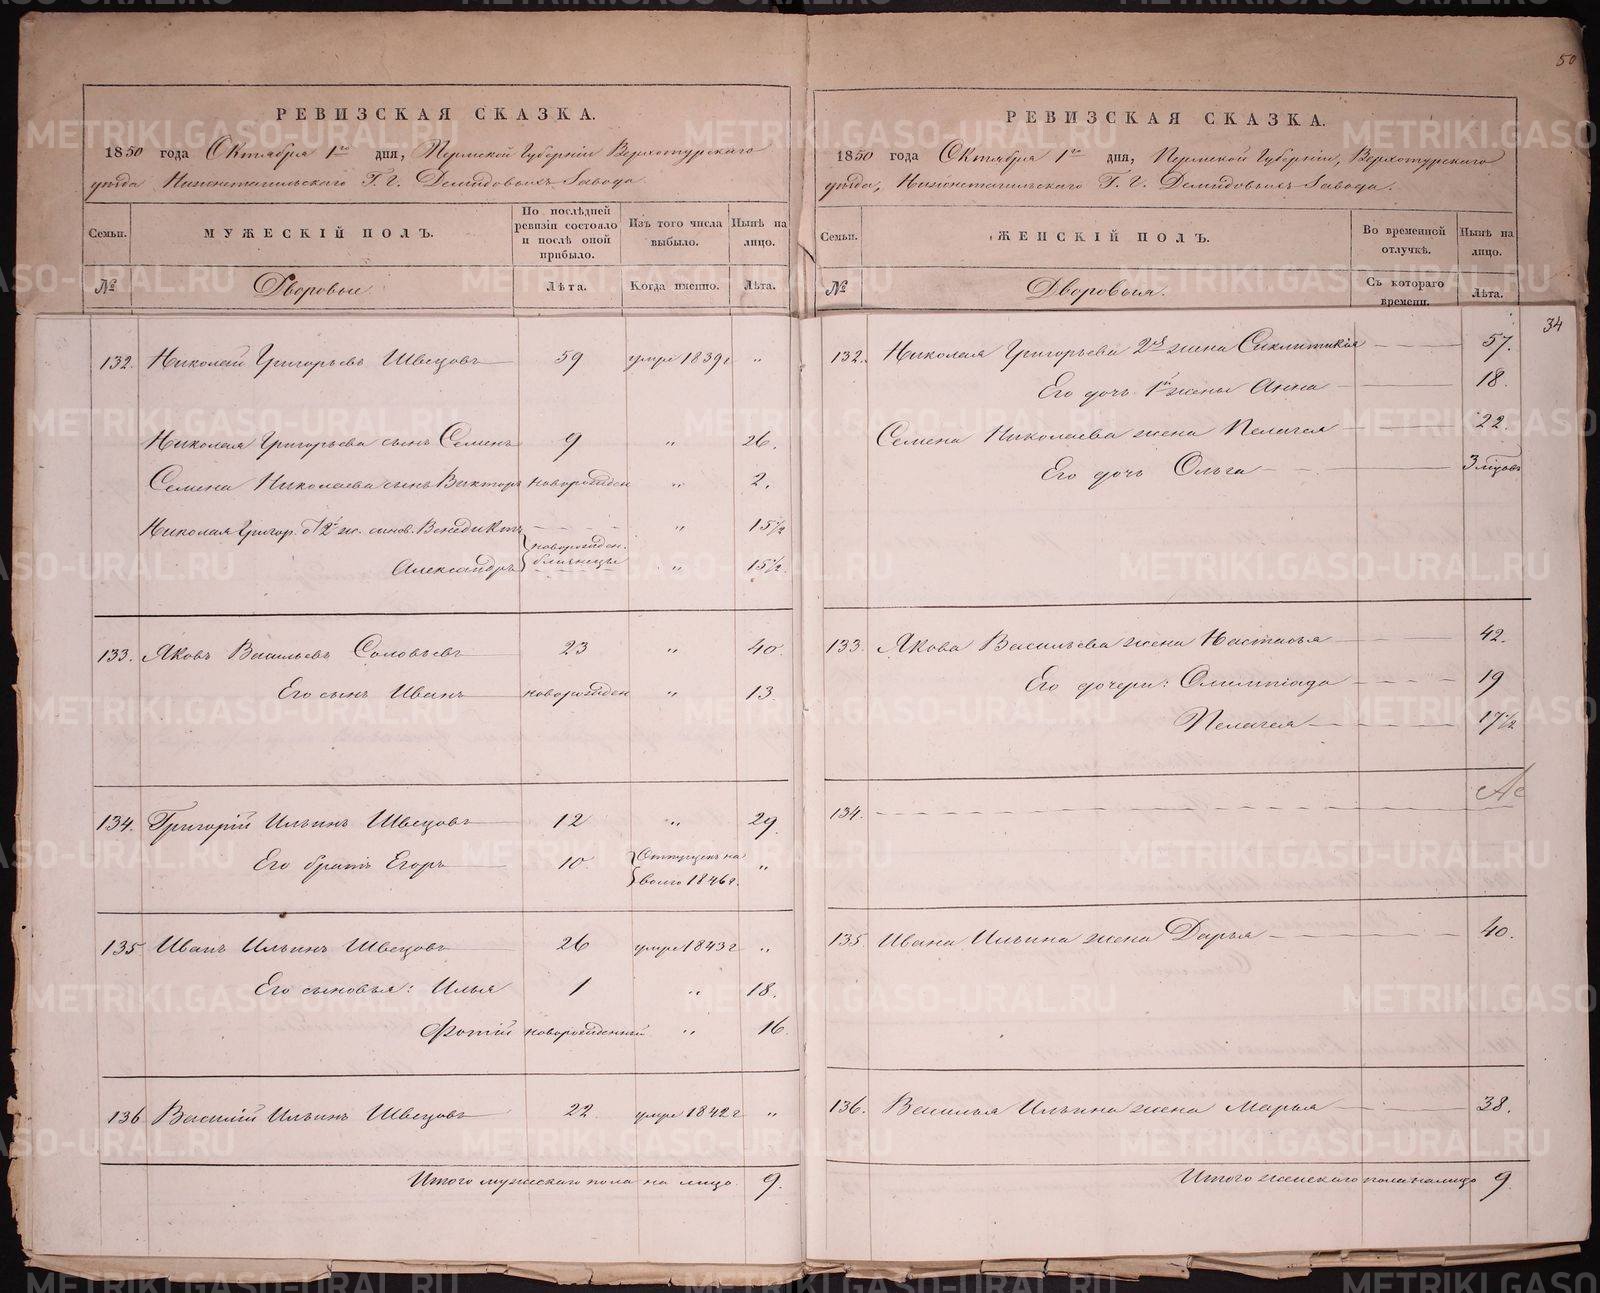 50
РЕВИЗСКАЯ СКАЗКА.
1850 года Октября 1го дня, Пермской Губернии Верхотурскаго
уѣзда Нижнетагильскаго Г. Г. Демидовыхъ Завода.
Семьи.
МУЖЕСКІЙ ПОЛЪ.
По послѣдней ревизіи состояло и послѣ оной прибыло.
Изъ того числа выбыло.
Нынѣ на лицо.
№
Дворовыи
Лѣта.
Когда именно.
Лѣта.
132. Николай Григорьевъ Швецовъ 59 умре 1839 г "
Николая Григорьева сынъ Семенъ 9 " 26.
Семена Николаева сынъ Викторъ новорожден " 2.
Николая Григор. от 2й ж. сынов. Венедиктъ " 15 1/2
новорожден. близнецы
Александръ " 15 1/2.
133. Яковъ Васильевъ Соловьевъ 23 " 40.
Его сынъ Иванъ новорожден " 13
134. Григорій Ильинъ Швецовъ 12 " 29.
Его братъ Егоръ 10 Отпущенъ на волю 1846 г. "
135 Иванъ Ильинъ Швецовъ 26 умре 1843 г "
Его сыновья: Илья 1 " 18.
Фотій новорожденный " 16.
136 Василій Ильинъ Швецовъ 22 умре 1842 г "
Итого мужескаго пола на лицо 9.
РЕВИЗСКАЯ СКАЗКА.
1850 года Октября 1го дня, Пермской Губерніи, Верхотурскаго
уѣзда, Нижнетагильскаго Г. Г. Демидовыхъ Завода.
Семьи.
ЖЕНСКІЙ ПОЛЪ.
Во временной отлучкѣ.
Нынѣ на лицо.
№
Дворовыя.
Съ котораго времени.
Лѣта.
34
132. Николая Григорьева 2я жена Сиклитикія 57.
Его дочь 1й жены Анна 18.
Семена Николаева жена Пелагея 22.
Его дочь Ольга 3 мѣсцов
133. Якова Васильева жена Настасья 42.
Его дочери: Олимпіада 19
Пелагея 17 1/2
134.
135 Ивана Ильина жена Дарья 40.
136. Василья Ильина жена Марья 38.
Итого женскаго пола на лицо 9
METRIKI.GASO-URAL.RU